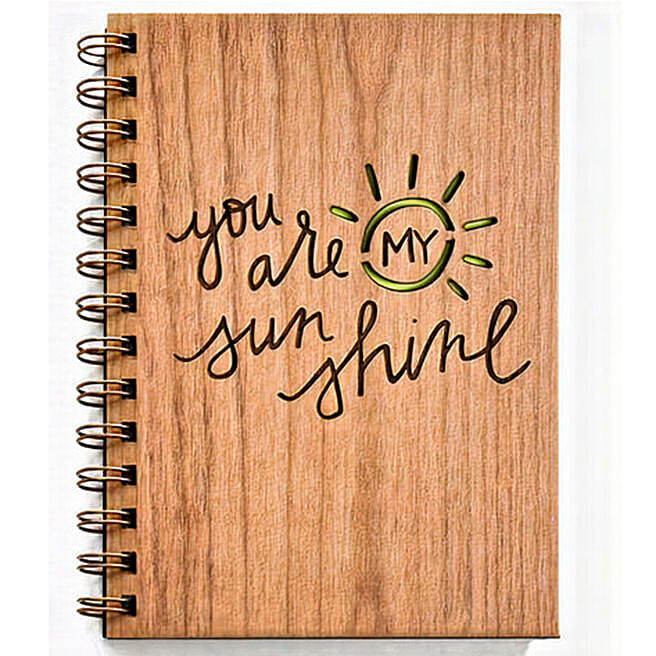 you
are MY
sun
shine